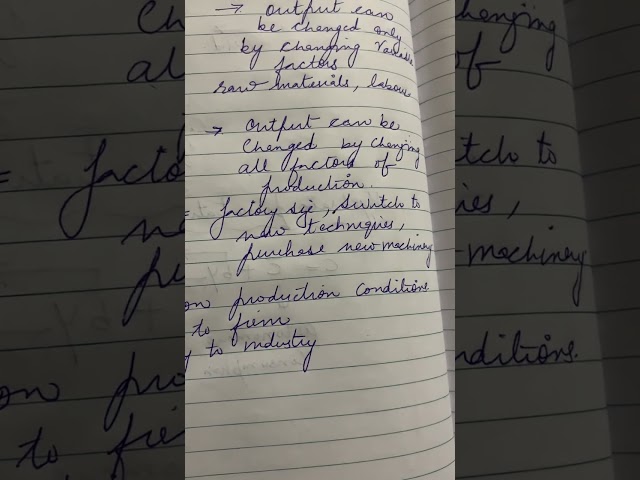 → Output can
be changed only
by changing Variable
factors
raw materials, labour
→ Output can be
Changed by changing
all factors of
production.
= factory size, Switch to
new techniques,
purchase new machinery
on production conditions.
to firm
to Industry